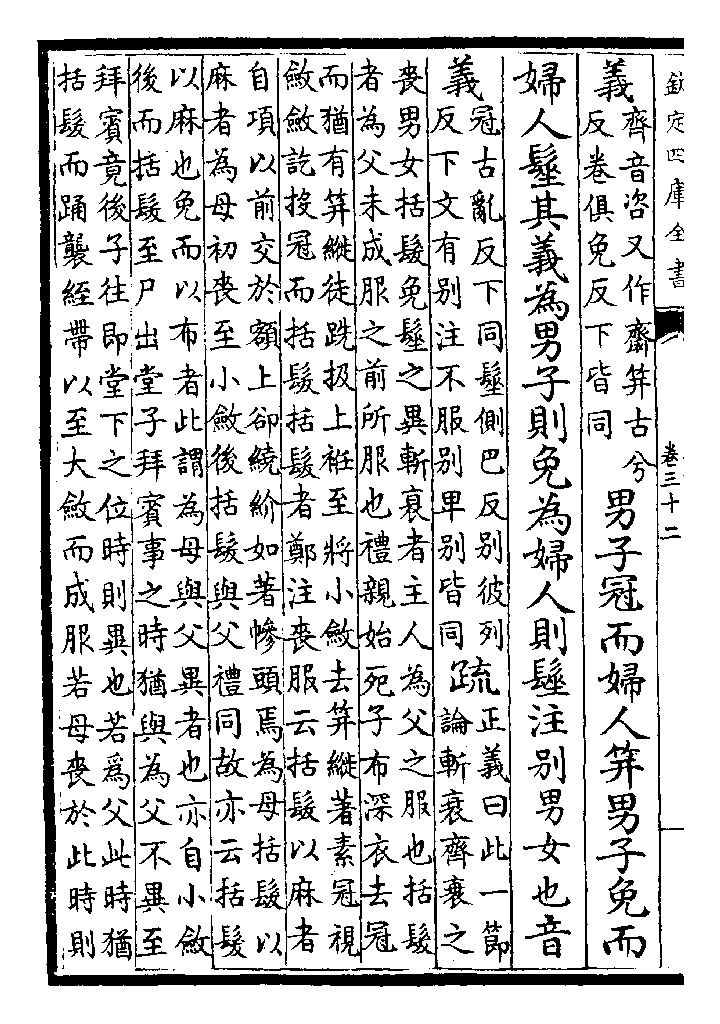 欽定四庫全書
卷三十二
義
齊音咨又作齋笄古兮
反卷俱免反下皆同
男子冠而婦人笄男子免而
婦人髽其義為男子則免為婦人則髽注別男女也音
義
冠古亂反下同髽側巴反別彼列
反下文有別注不服別卑別皆同
疏
正義曰此一節
論斬衰齊衰之
喪男女括髮免髽之異斬衰者主人為父之服也括髮
者為父未成服之前所服也禮親始死子布深衣去冠
而猶有笄縰徒跣扱上衽至將小斂去笄縰著素冠視
斂斂訖投冠而括髮括髮者鄭注喪服云括髮以麻者
自項以前交於額上卻繞紒如著幓頭焉為母括髮以
麻者為母初喪至小斂後括髮與父禮同故亦云括髮
以麻也免而以布者此謂為母與父異者也亦自小斂
後而括髮至尸出堂子拜賓事之時猶與為父不異至
拜賓竟後子往即堂下之位時則異也若爲父此時猶
括髮而踊襲絰帶以至大斂而成服若母喪於此時則